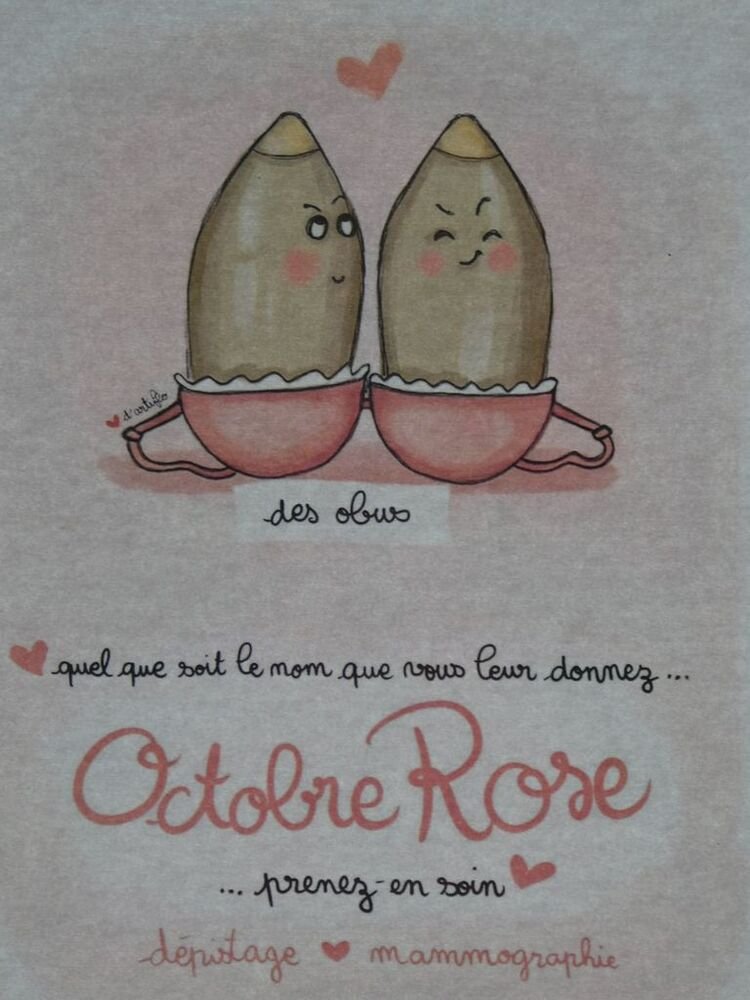 d'artiflo
des obus
quel que soit le nom que vous leur donnez...
Octobre Rose
... prenez-en soin
dépistage mammographie